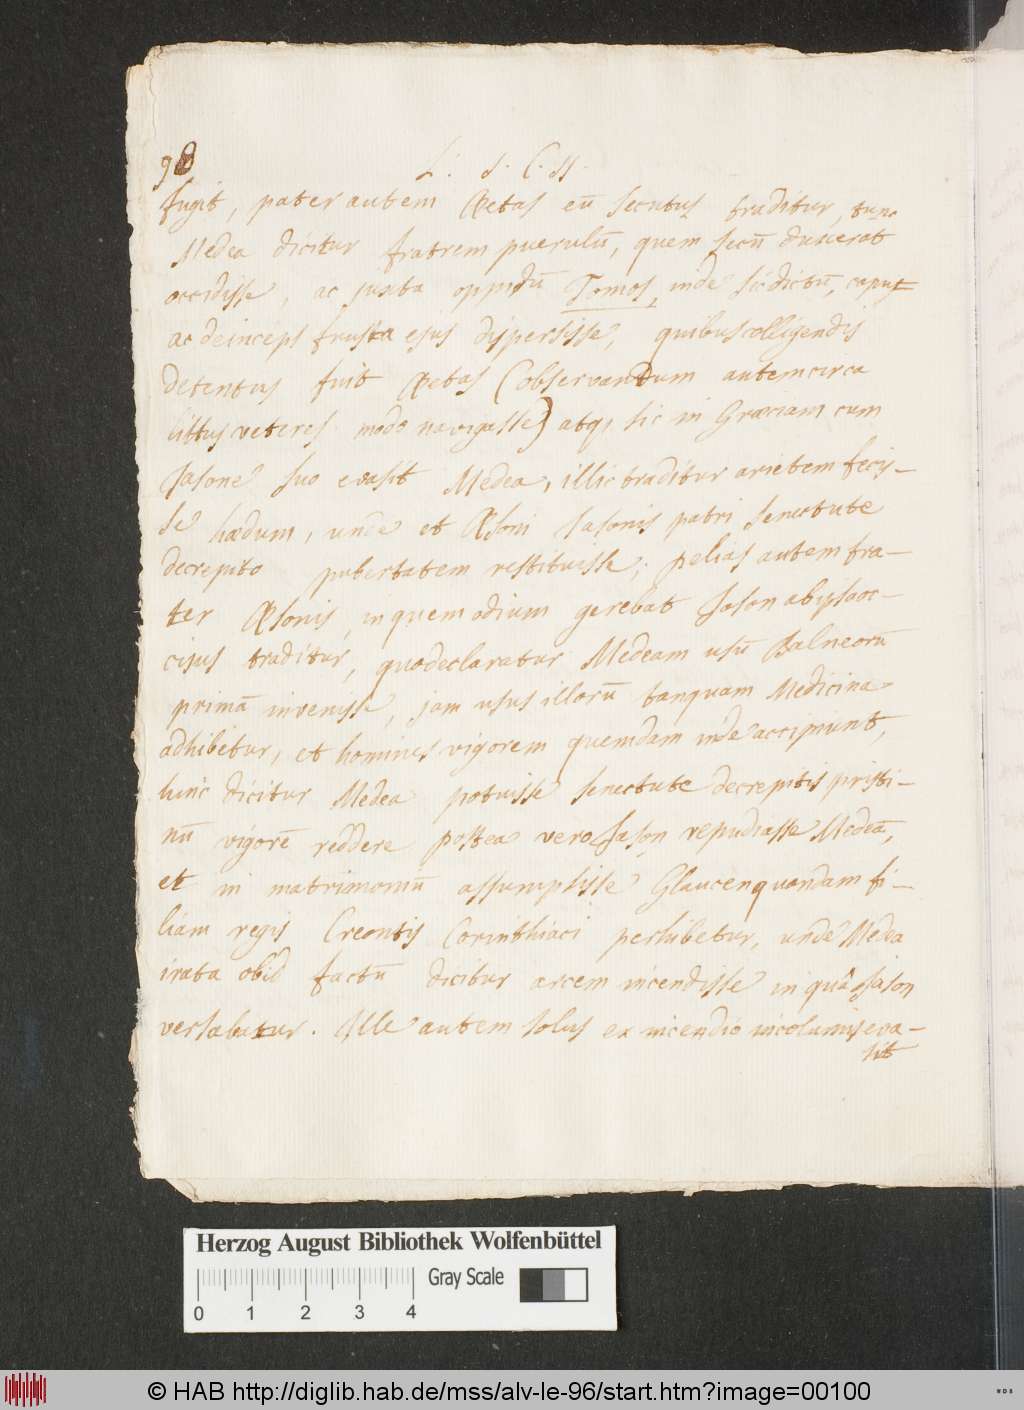 98
L. S. C. II.
fugit, pater autem Æetas eū secutus traditur, tunc
Medea dicitur fratrem puerulū, quem secū duxerat
occidisse, ac juxta oppidū Tomos, inde sic dictū, caput
ac deinceps frusta ejus dispersisse, quibus colligendis
detentus fuit Æetas (observandum autem circa
littus veteres modo navigasse) atq, sic in Græciam cum
Jasone suo evasit Medea, illic traditur arietem fecis-
se hædum, unde et Æsoni Jasonis patri senectute
decrepito pubertatem restituisse; pelias autem fra-
ter Æsonis, in quem odium gerebat Jason ab ipsa oc-
cisus traditur, quo declaratur Medeam usū Balneorū
primā invenisse, jam usus illorū tanquam Medicina
adhibetur, et homines vigorem quemdam inde accipiunt,
hinc dicitur Medea potuisse senectute decrepitis pristi-
nū vigorē reddere postea vero Jason repudiasse Medeā,
et in matrimoniū assumpsisse Glaucen quandam fi-
liam regis Creontis Corinthiaci perhibetur, unde Medea
irata ob id factū dicitur arcem incendisse in quâ Jason
versabatur. Ille autem solus ex incendio incolumis eva-
sit
Herzog August Bibliothek Wolfenbüttel
Gray Scale
0 1 2 3 4
© HAB http://diglib.hab.de/mss/alv-le-96/start.htm?image=00100